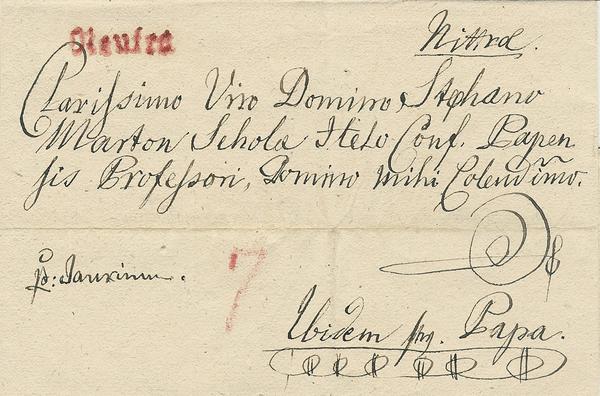 Neutra
Nittræ.
Clarissimo Viro Domino Stephano
Marton Scholæ Helv. Conf. Papen
sis Professori, Domino mihi Colendm̃o.
p: Jaurinum.
7
Ibidem Papa.